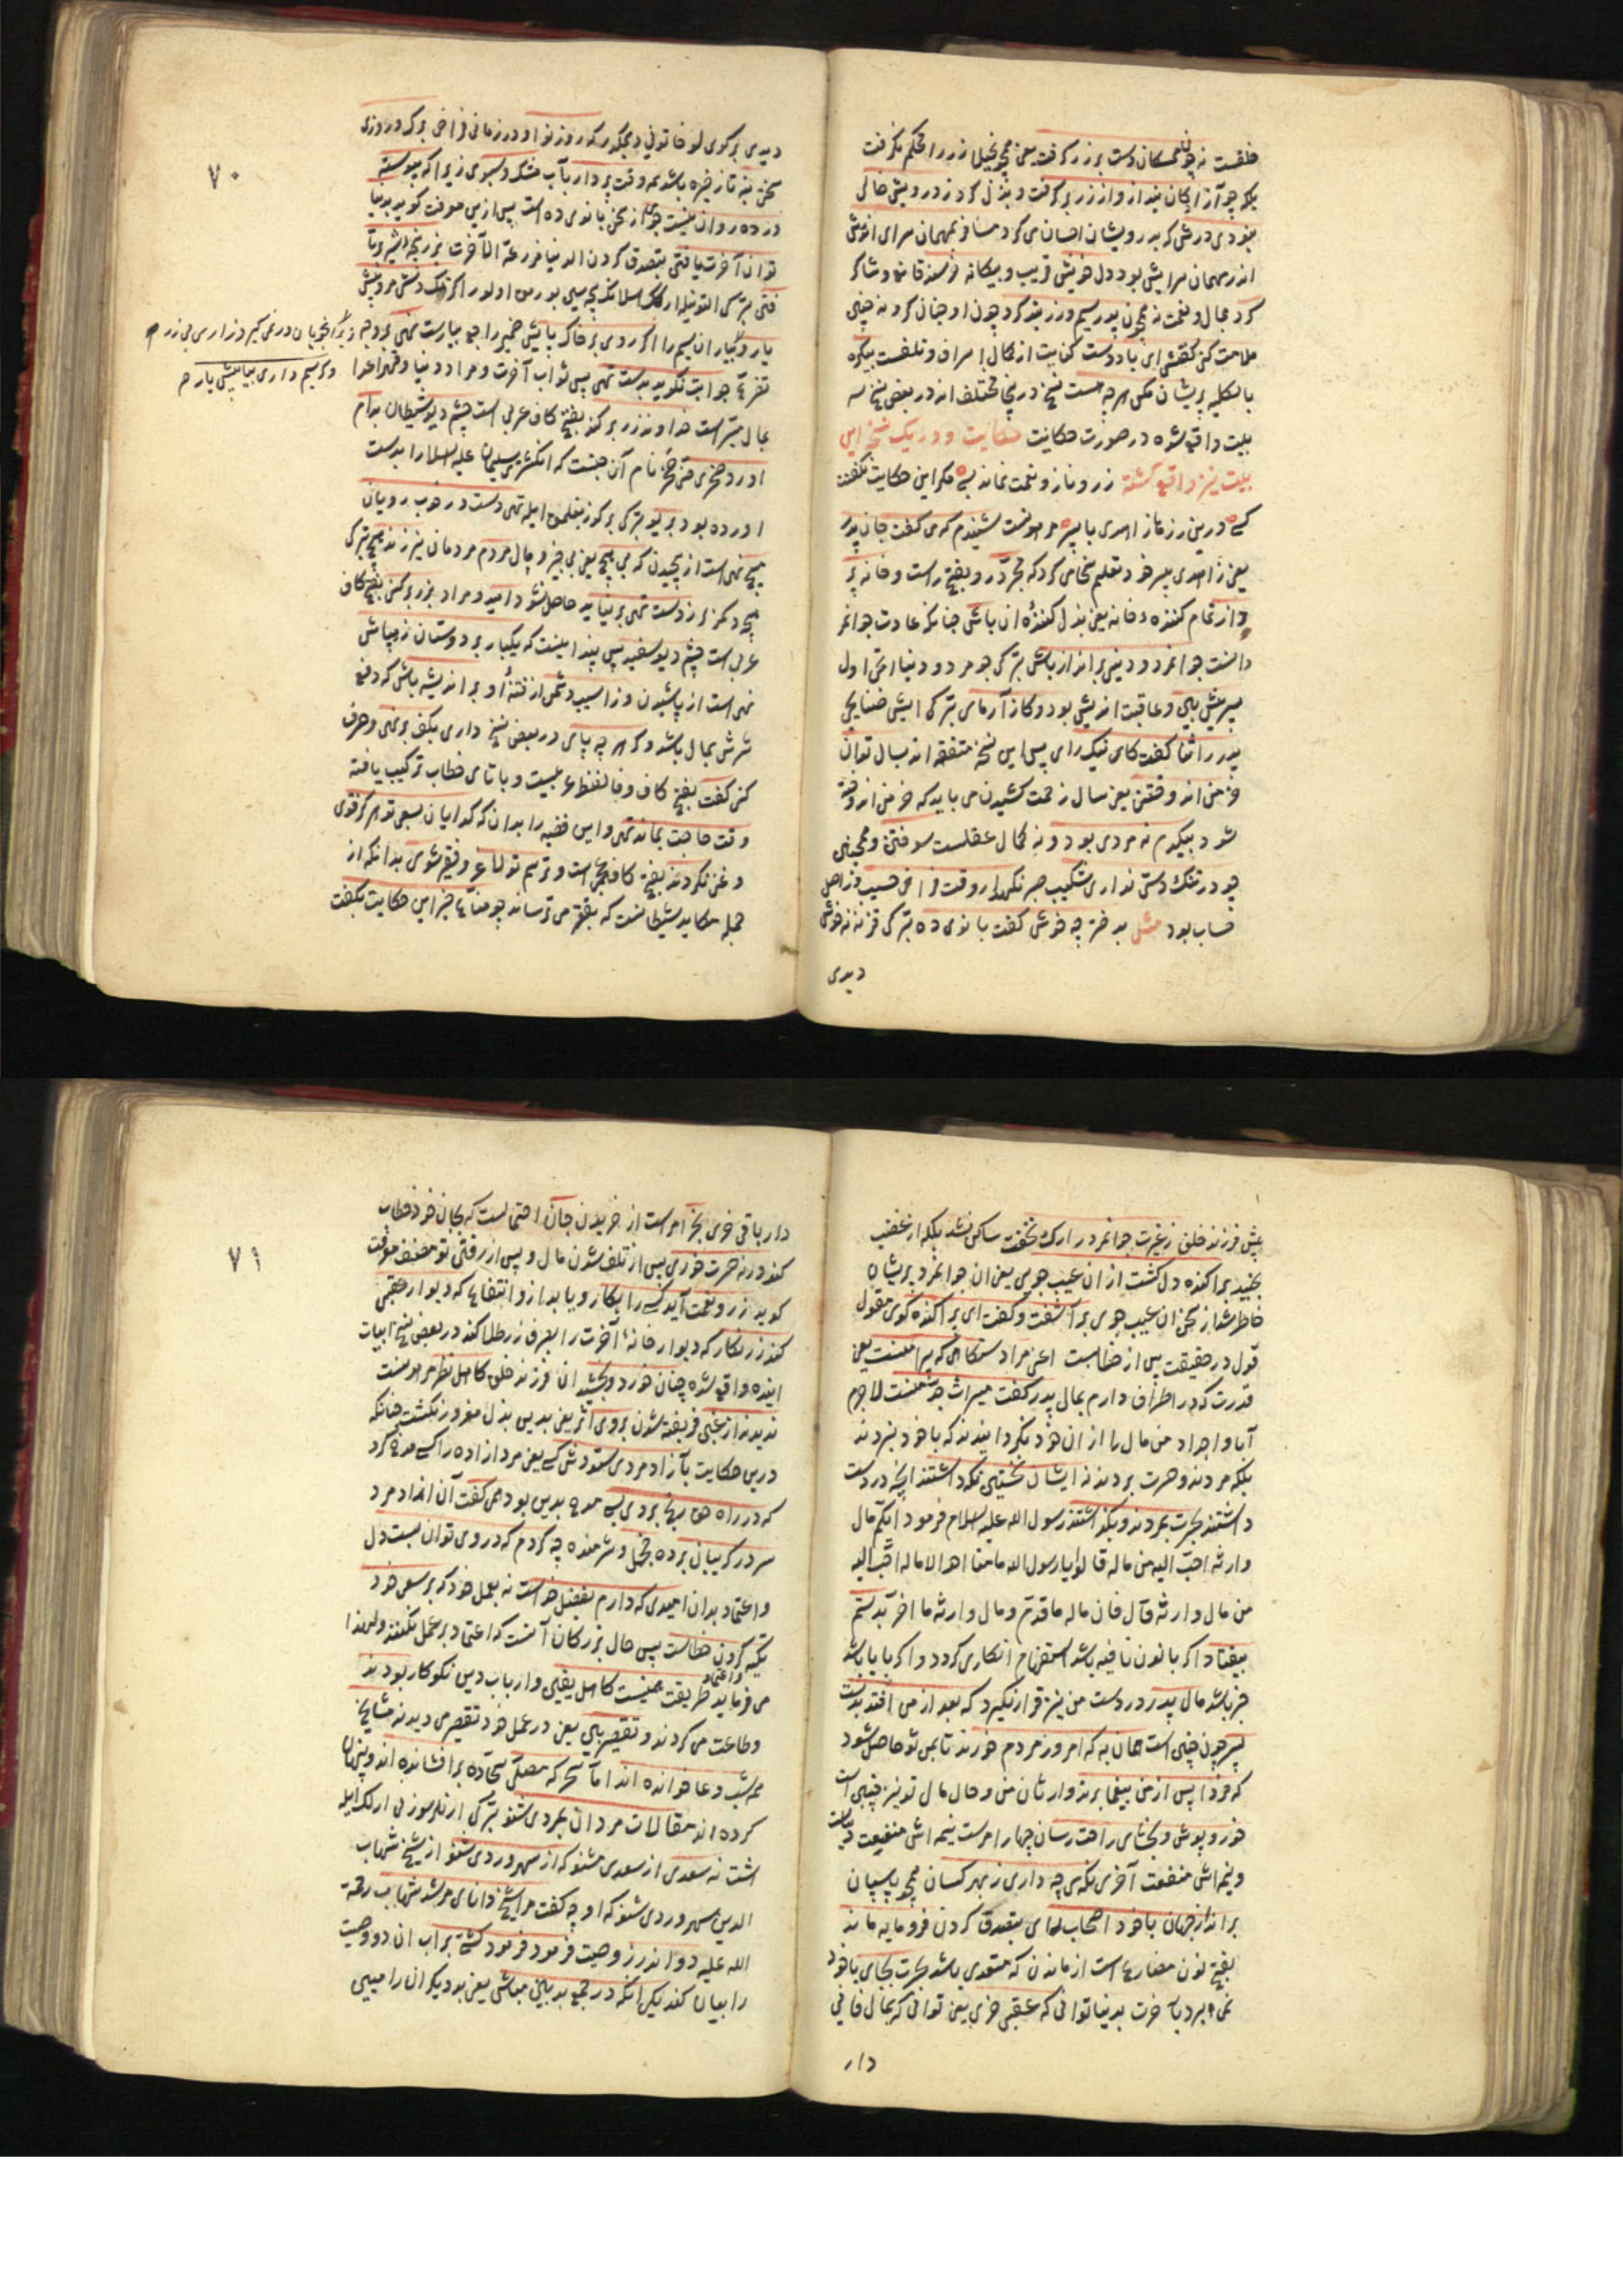 خلقست نه چون ممسکان دست بر زر گرفت یعنی همچو بخیلان زر را محکم نگرفت
بلکه چو آزادکان بند از وزر بر گرفت و بذل کرد ز درویش خالی
نبودی درش که بدرویشان احسان می کرد مسافر بمهمان سرای اندرش
اندر مهمان سرایش بود دل خویش و بیکانه خرسند قانع و شاکر
کرد بمال و نعمت نه همچون پدر سیم و زر بند کرد چون او چنان کرد نه چنین
ملامت کنی کفتش ای باد دست کنایت از کمال اسراف و تلفست بیکره
بالکلیه پریشان مکن هر چه هست نسخ درینجا مختلف اند در بعضی نسخ سه
بیت واقع شده در صورت حکایت حکایت و در یک نسخه این
بیت نیز واقع کشته زر و ناز و نعمت نماند بسی مکر این حکایت نکفتت
کسی درین روز ها زاهدی با پسر مر هونست شنیدم که می کفت جان پدر
یعنی زاهدی پسر خود تعلیم سخا می کرد که مجرد رو بفتح راست و خانه پر
داز تمام کننده خانه یعنی بذل کننده آن باش چنانکه عادت جوانمر
دانست جوانمرد و دینی برانداز باش ترکی جومرد و دنیا اتجی اول
پسر پیش بین و عاقبت اندیش بود و کار آزمای ترکی ایش صنایجی
پدر را ثنا کفت کای نیک رای پس این نسخه متفقه اند بسال توان
خرمن اندوختن یعنی سال زحمت کشیدن می باید که خرمن اندوخته
شود بیکدم نه مردی بود و نه کمال عقلست سوختن و همچنین
چو در تنک دستی نداری شکیب صبر نکهدار وقت فراخی حسیب فراصل
حساب بود مثل بدختر چه خوش کفت بانوی ده ترکی قزنه نه خوش
دیدی
۷۰
دیدی بر کوی لو خاتونی دیمکدر که روز نوا و در زمان فراخی برک و روزی
سختی بنه تا ذخیره باشد همه وقت پر دار بآب مشک و سبوی زیرا که پیوسته
در ده روان نیست جوی از سخن بانوی ده است پس ازین معرفت کوید بدنیا
توان آخرت یافتن بتصدق کردن الدنیا مزرعة الآخرة بزر پنجه شیر بر تا
فتن ترکی التونیله ارسلانک پنجه سین بورمق اولور اکر تنک دستی مرو پیش
یار و کر یاران سیم را اکر روی بر خاک پایش خمیر را جع بیارست نهی بر وجه
تضرع جوابت نکوید بدست تهی پس ثواب آخرت و مراد دنیا و قهر اعدا
بمال میسر است خداوند زر بر کند بفتح کاف عربی است چشم دیو شیطان بدام
آورد صخری جنی صخر نام آن جنست که انکشتری سلیمان علیه السلام را بدست
آورده بود بریو ترکی بر کوز بغلمق ایله تهی دست در خوب رویان
مپیچ نهی است از پیچیدن که بی هیچ یعنی بی چیز و مال مردم مردمان نیرزند بهیچ ترکی
هیچ دکمز بر زدست تهی بر نیاید حاصل نشود امید و مراد بزر بر کنی بفتح کاف
عربی است چشم دیو سفید پس پند اینست که یکبار بر دوستان زر مپاش
نهی است از پاشیدن و ز اسیب دشمن از فتنه او بر اندیشه باش که دفع
شرش بمال باشد و کر هر چه یابی در بعضی نسخ داری بکف بر نهی و صرف
کنی کفت بفتح کاف و فا لفظ عربیست و با تای خطاب ترکیب یافته
وقت حاجت بماند تهی و این قضیه را بدان که کدایان بسعی تو هرکز قوی
و غنی نکردند بفتح کاف عجمی است و ترسم تو لاغر و فقیر شوی بدانکه از
جمله مکاید شیطانست که بفقر می ترساند چو مناع خیر این حکایت بکفت
دیگر انجریان در غمی کیر و زاری بی زر م
وکر سیم داری بیا پیش یار م
بپیش فرزند خلق ز غیرت جوانمرد را رک نخفت ساکن نشد بلکه از غضب
بجنبید پراکنده دل کشت از ان عیب جوی یعنی ان جوانمرد پریشان
خاطر شد از سخن ان عیب جوی بر آشفت و کفت ای پراکنده کوی مقول
قول در حقیقت پس از خطابست اعنی مرا دستکاهی که پیرامنست یعنی
قدرت که در اطراف دارم بمال پدر کفت میراث جد منست لا جرم
آبا و اجداد من مال را از ان خود نکردانیدند که با خود نبردند
بلکه مردند و حسرت بردند نه ایشان بخستی نکه داشتند انچه در دست
داشتند بحسرت بمردند و بکذاشتند رسول الله علیه السلام فرمود ایکم مال
وارثه احب الیه من ماله قالوا یا رسول الله ما منا احد الا ماله احب الیه
من مال وارثه قال فان ماله ما قدم و مال وارثه ما اخر بدستم
بیفتاد اکر با نون نافیه باشد استفهام انکاری کردد و اکر با یا باشد
خبر باشد مال پدر در دست من نیز قرار نکیرد که بعد از من افتد بدست
پسر چون چنین است همان به که امروز مردم خورند تا بمن ثواب حاصل شود
که فردا پس از من بیغما برند وارثان من و حال مال تو نیز چنین است
خور و پوش و بخشای راحت رسان چهار امرست نیمه اش منفعت دنیاست
و نیم اش منفعت آخری نکه می چه داری ز بهر کسان همچو پاسبان
برانداز جهان با خود اصحاب رای بتصدق کردن فرومایه ماند
بفتح نون مضارع است از ماندن که متعدی باشد بحسرت بجای با خود
نمی برد بآخرت بدنیا توانی که عقبی خری یعنی توانی که بمال فانی
دار
۷۱
دار باقی خری بخر امر است از خریدن جان احتمالست که بجان خود خطاب
کند ورنه حسرت خوری پس از تلف شدن مال و پس از رفتن تو مصنف معرفت
کوید زر و نعمت آید کسی را بکار و یابد از و انتفاع که دیوار عقبی
کند زر نکار که دیوار خانه آخرت را بصرف زر طلا کند در بعضی نسخ ابیات
اینده واقع شده چنان خورد و بخشید ان فرزند خلق کاهل نظر مر هونست
ندیدند از عجبی فریفته شدن بروی اثر یعنی بدین بذل مغرور نکشت چنانکه
درین حکایت بآزاد مردی ستودش کسی یعنی مرد ازاده را کسی مدح کرد
که در راه حق رنج بردی بسی مدح بدین بود همی کفت آن آزاد مرد
سر در کریبان برده خجل و شرمنده چه کردم که در وی توان بست دل
و اعتماد بدان امیدی که دارم بفضل خداست نه بعمل خود که بر سعی خود
تکیه کردن خطاست پس حال بزرکان آنست که اعتماد بر عمل نکنند ولهذا
می فرماید طریقت واعتماد همینست کاهل یقین و ارباب دین نکوکار بودند
و طاعت می کردند و تقصیر بین یعنی در عمل خود تقصیر می دیدند مشایخ
همه شب دعا خوانده اند اما سحر که مصلی سجاده بر افشانده اند و پنهان
کرده اند مقالات مردان بمردی شنو ترکی ارنلر سوزنی ارلک ایله
اشت نه سعدی از سعدی مشنو که از سهروردی شنو از شیخ شهاب
الدین سهروردی شنو که او چه کفت مرا شیخ دانای مرشد شهاب رحمة
الله علیه دو اندرز وصیت فرمود فرمود کشتی بر اب ان دو وصیت
را بیان کند یکی انکه در جمع بدبین مباش یعنی بد دیکران را مبین